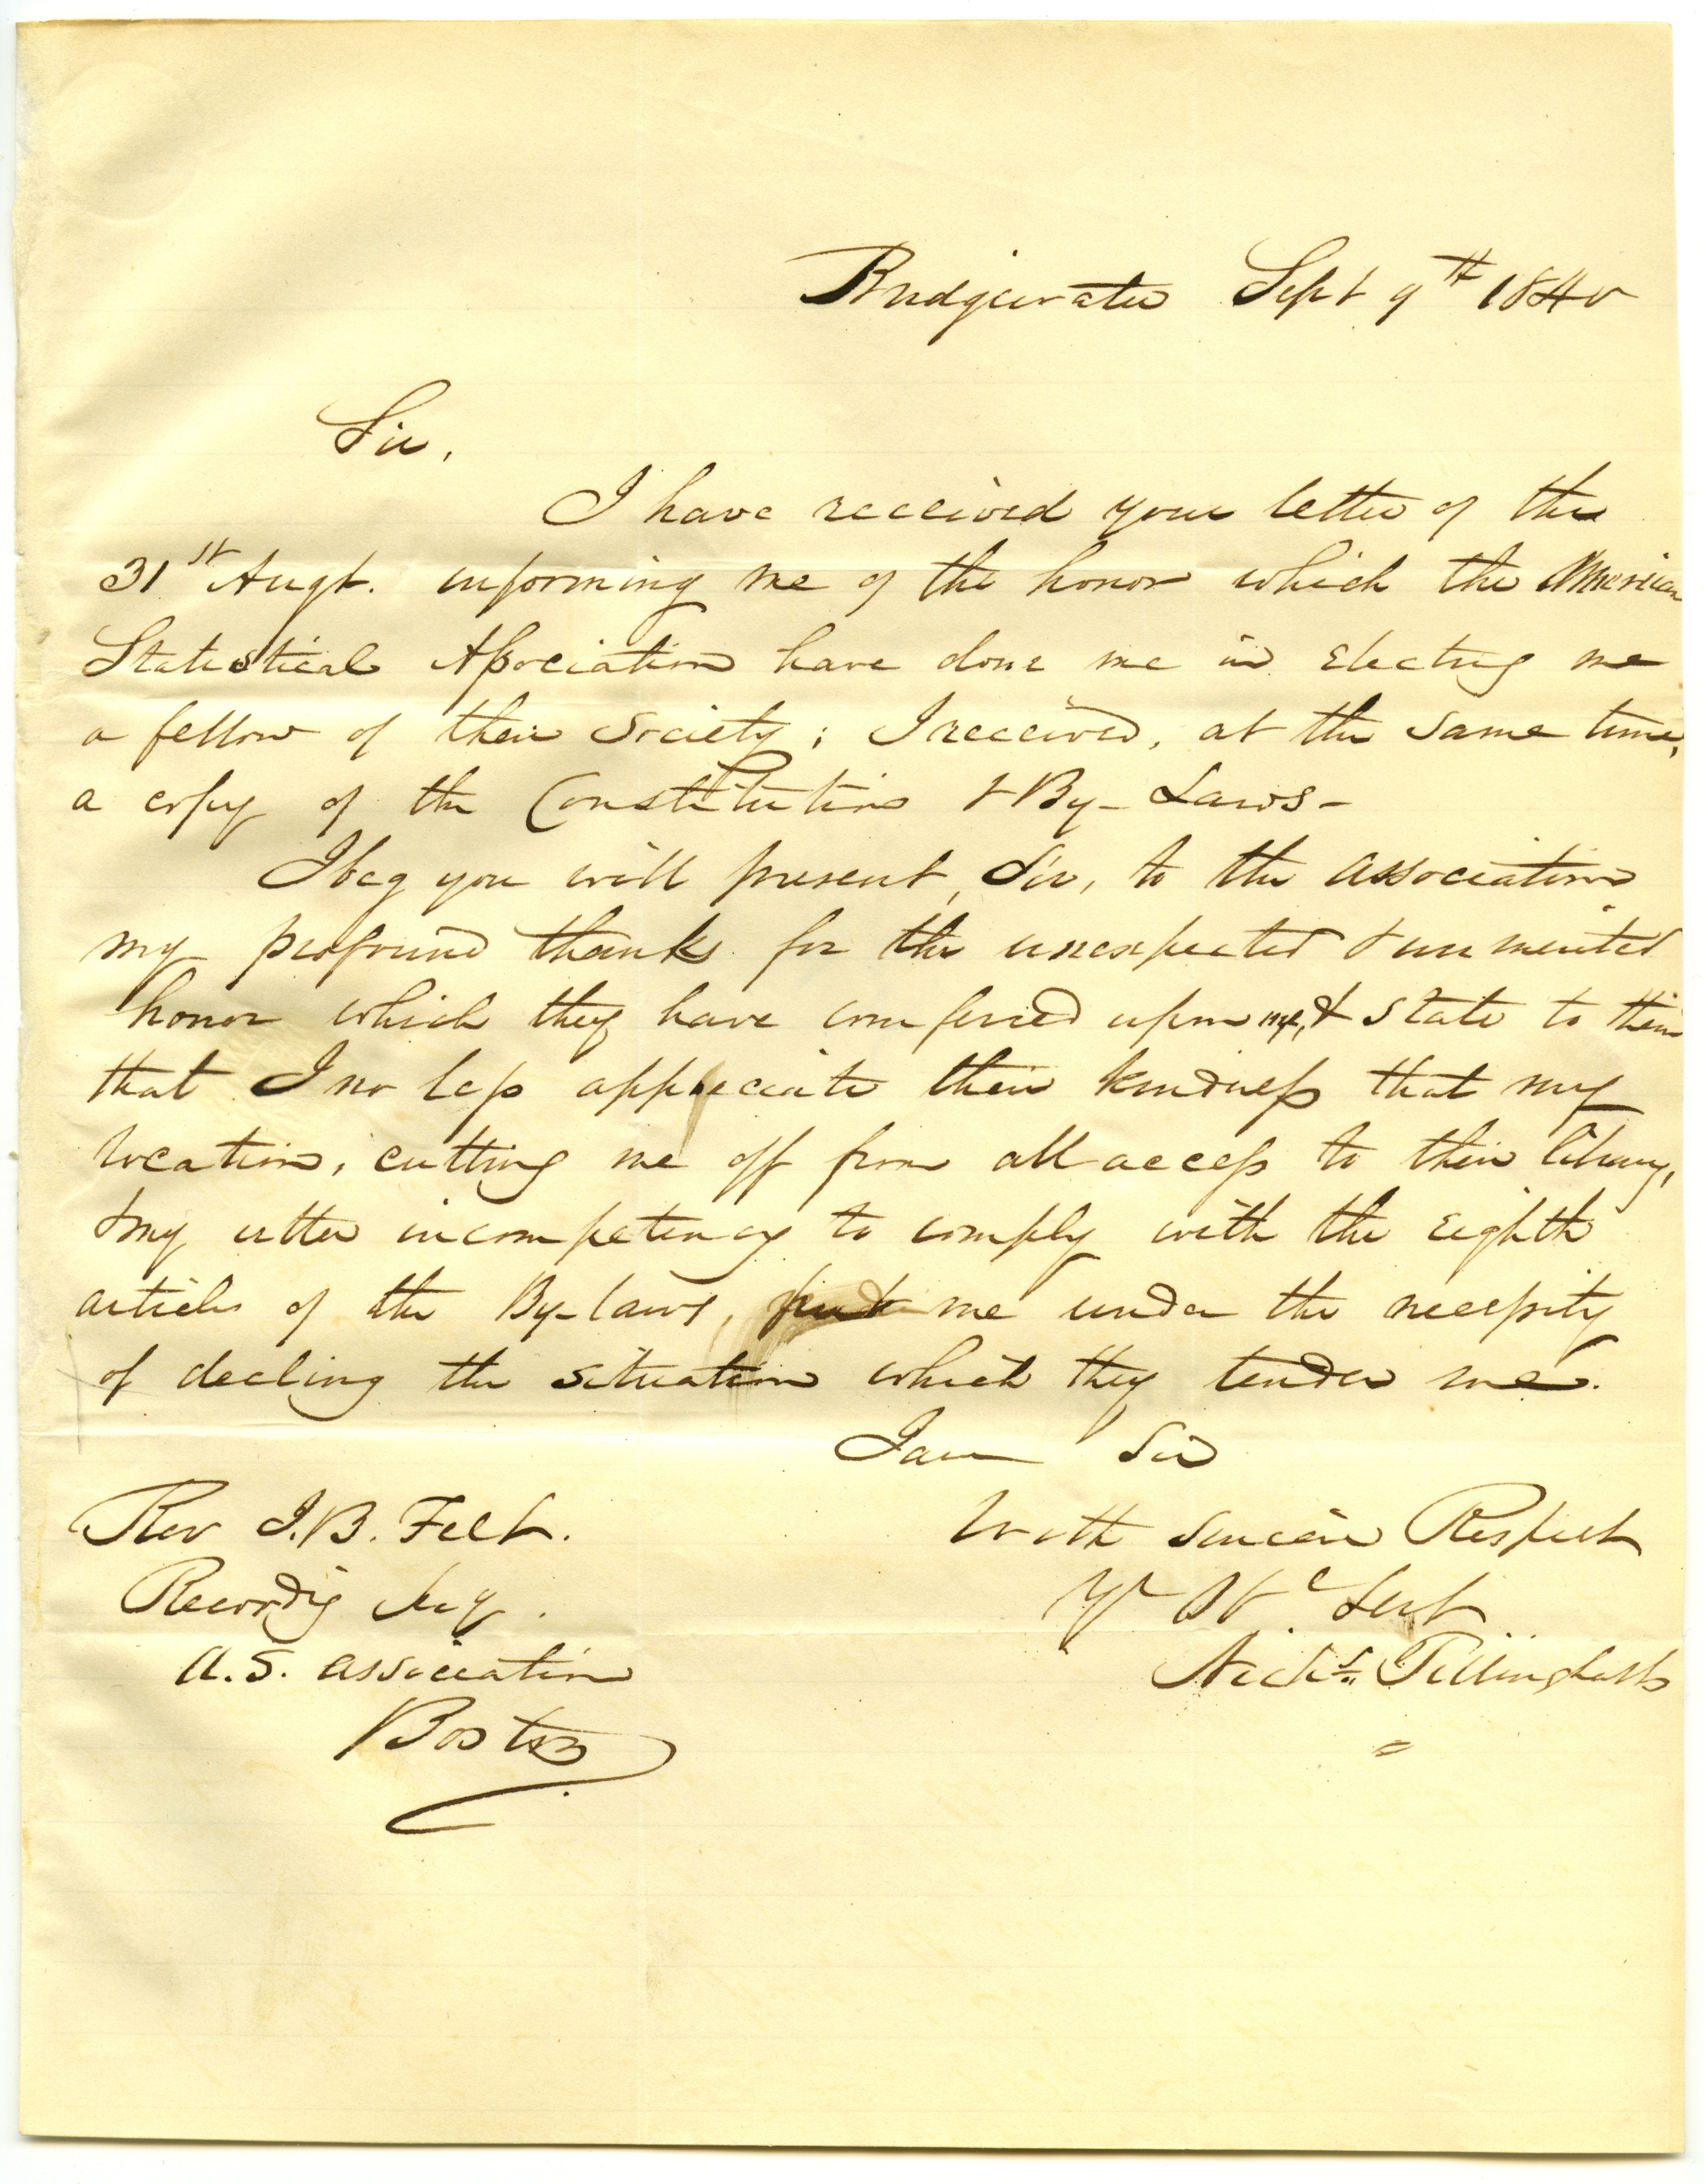 Bridgewater Sept 9th 1840
Sir,
I have received your letter of the
31st Augt. informing me of the honor which the American
Statistical Association have done me in electing me
a fellow of their Society; I received, at the same time,
a copy of the Constitution & By-Laws-
I beg you will present, Sir, to the association
my profound thanks for the unexpected & unmerited
honor which they have conferred upon me, & state to them
that I no less appreciate their kindness that my
location, cutting me off from all access to their library,
& my utter incompetency to comply with the eighth
article of the By-laws, put me under the necessity
of decling the situation which they tender me.
I am Sir
With sincere Respect
Yr Obt Servt
Nichs. Tillinghast
Rev J. B. Felt.
Recordig Secy.
A. S. association
Boston